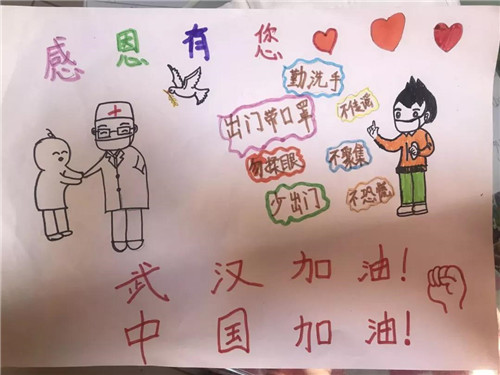 感恩有您
勤洗手
出门带口罩
不信谣
勿揉眼
不聚集
少出门
不恐慌
武汉加油!
中国加油!